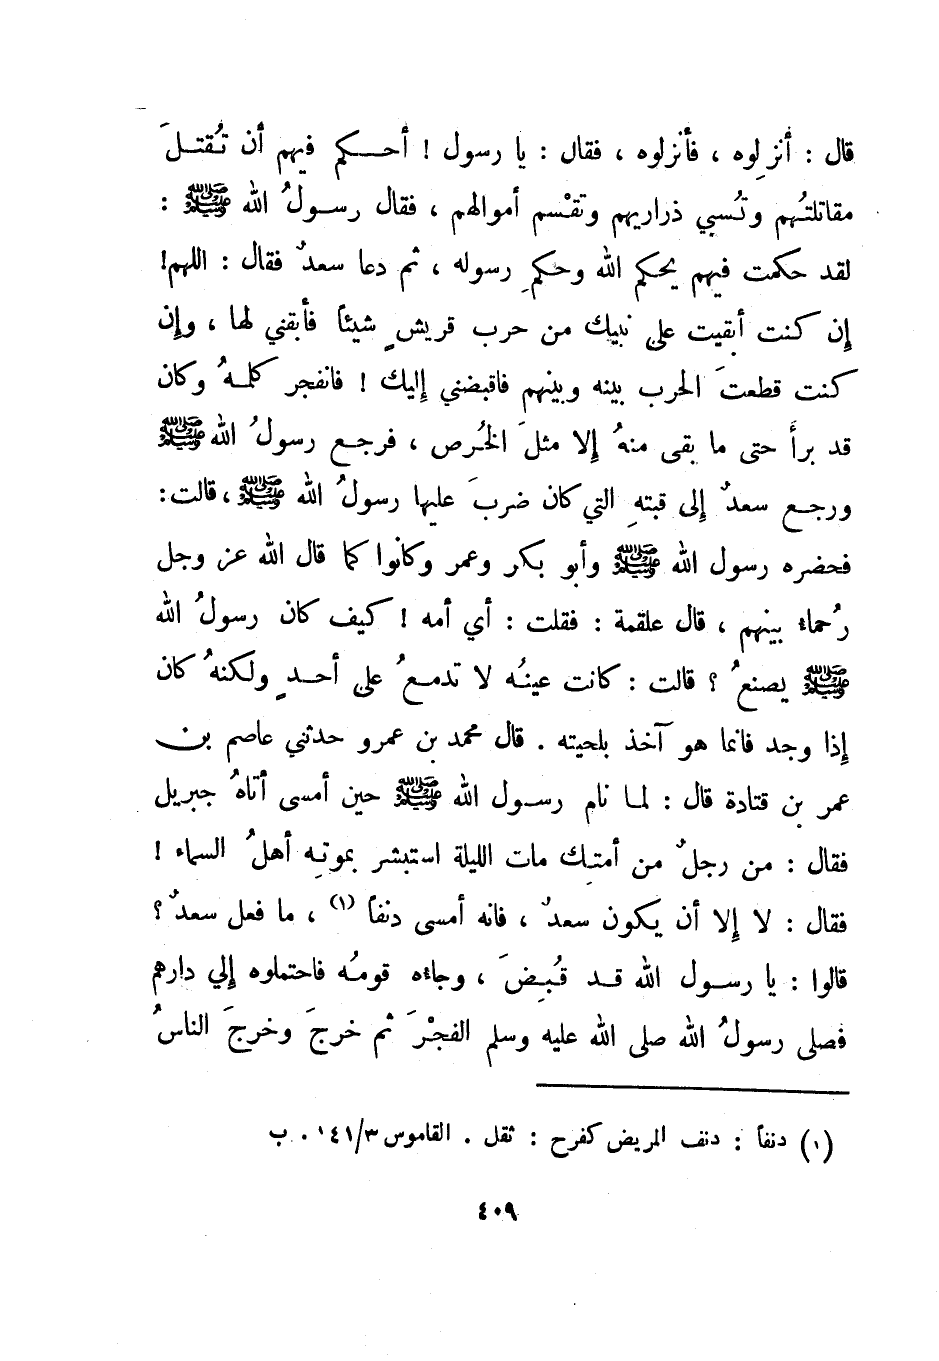 قال : أنزِلوه ، فأنزلوه ، فقال : يا رسول ! أحكم فيهم أن تُقتلَ
مقاتلتُهم وتُسبي ذراريهم وتقْسم أموالهم ، فقال رسولُ الله ﷺ :
لقد حكمت فيهم بحكم الله وحكمِ رسوله ، ثم دعا سعدٌ فقال : اللهم!
إن كنت أبقيت على نبيك من حرب قريشٍ شيئاً فأبقني لها ، وإن
كنت قطعتَ الحرب بينه وبينهم فاقبضني إليك ! فانفجر كلمهُ وكان
قد برأَ حتى ما بقى منهُ إلا مثلَ الخُرص ، فرجع رسولُ الله ﷺ
ورجع سعدٌ إلى قبتهِ التي كان ضربَ عليها رسولُ الله ﷺ ، قالت:
فحضره رسول الله ﷺ وأبو بكر وعمر وكانوا كما قال الله عز وجل
رُحماء بينهم ، قال علقمة : فقلت : أي أمه ! كيف كان رسولُ الله
ﷺ يصنعُ ؟ قالت : كانت عينُه لا تدمعُ على أحدٍ ولكنهُ كان
إذا وجد فانما هو آخذ بلحيته . قال محمد بن عمرو حدثني عاصم بن
عمر بن قتادة قال : لما نام رسول الله ﷺ حين أمسى أتاهُ جبريل
فقال : من رجلٌ من أمتِك مات الليلة استبشر بموتِه أهلُ السماء !
فقال : لا إلا أن يكون سعدٌ ، فانه أمسى دنفاً (١) ، ما فعل سعدٌ ؟
قالوا : يا رسول الله قد قُبِضَ ، وجاءه قومُه فاحتملوه إلي دارهم
فصلى رسولُ الله صلى الله عليه وسلم الفجْرَ ثم خرجَ وخرجَ الناسُ
(١) دنفاً : دنف المريض كفرح : ثقل . القاموس ١٤١/٣ . ب
٤٠٩